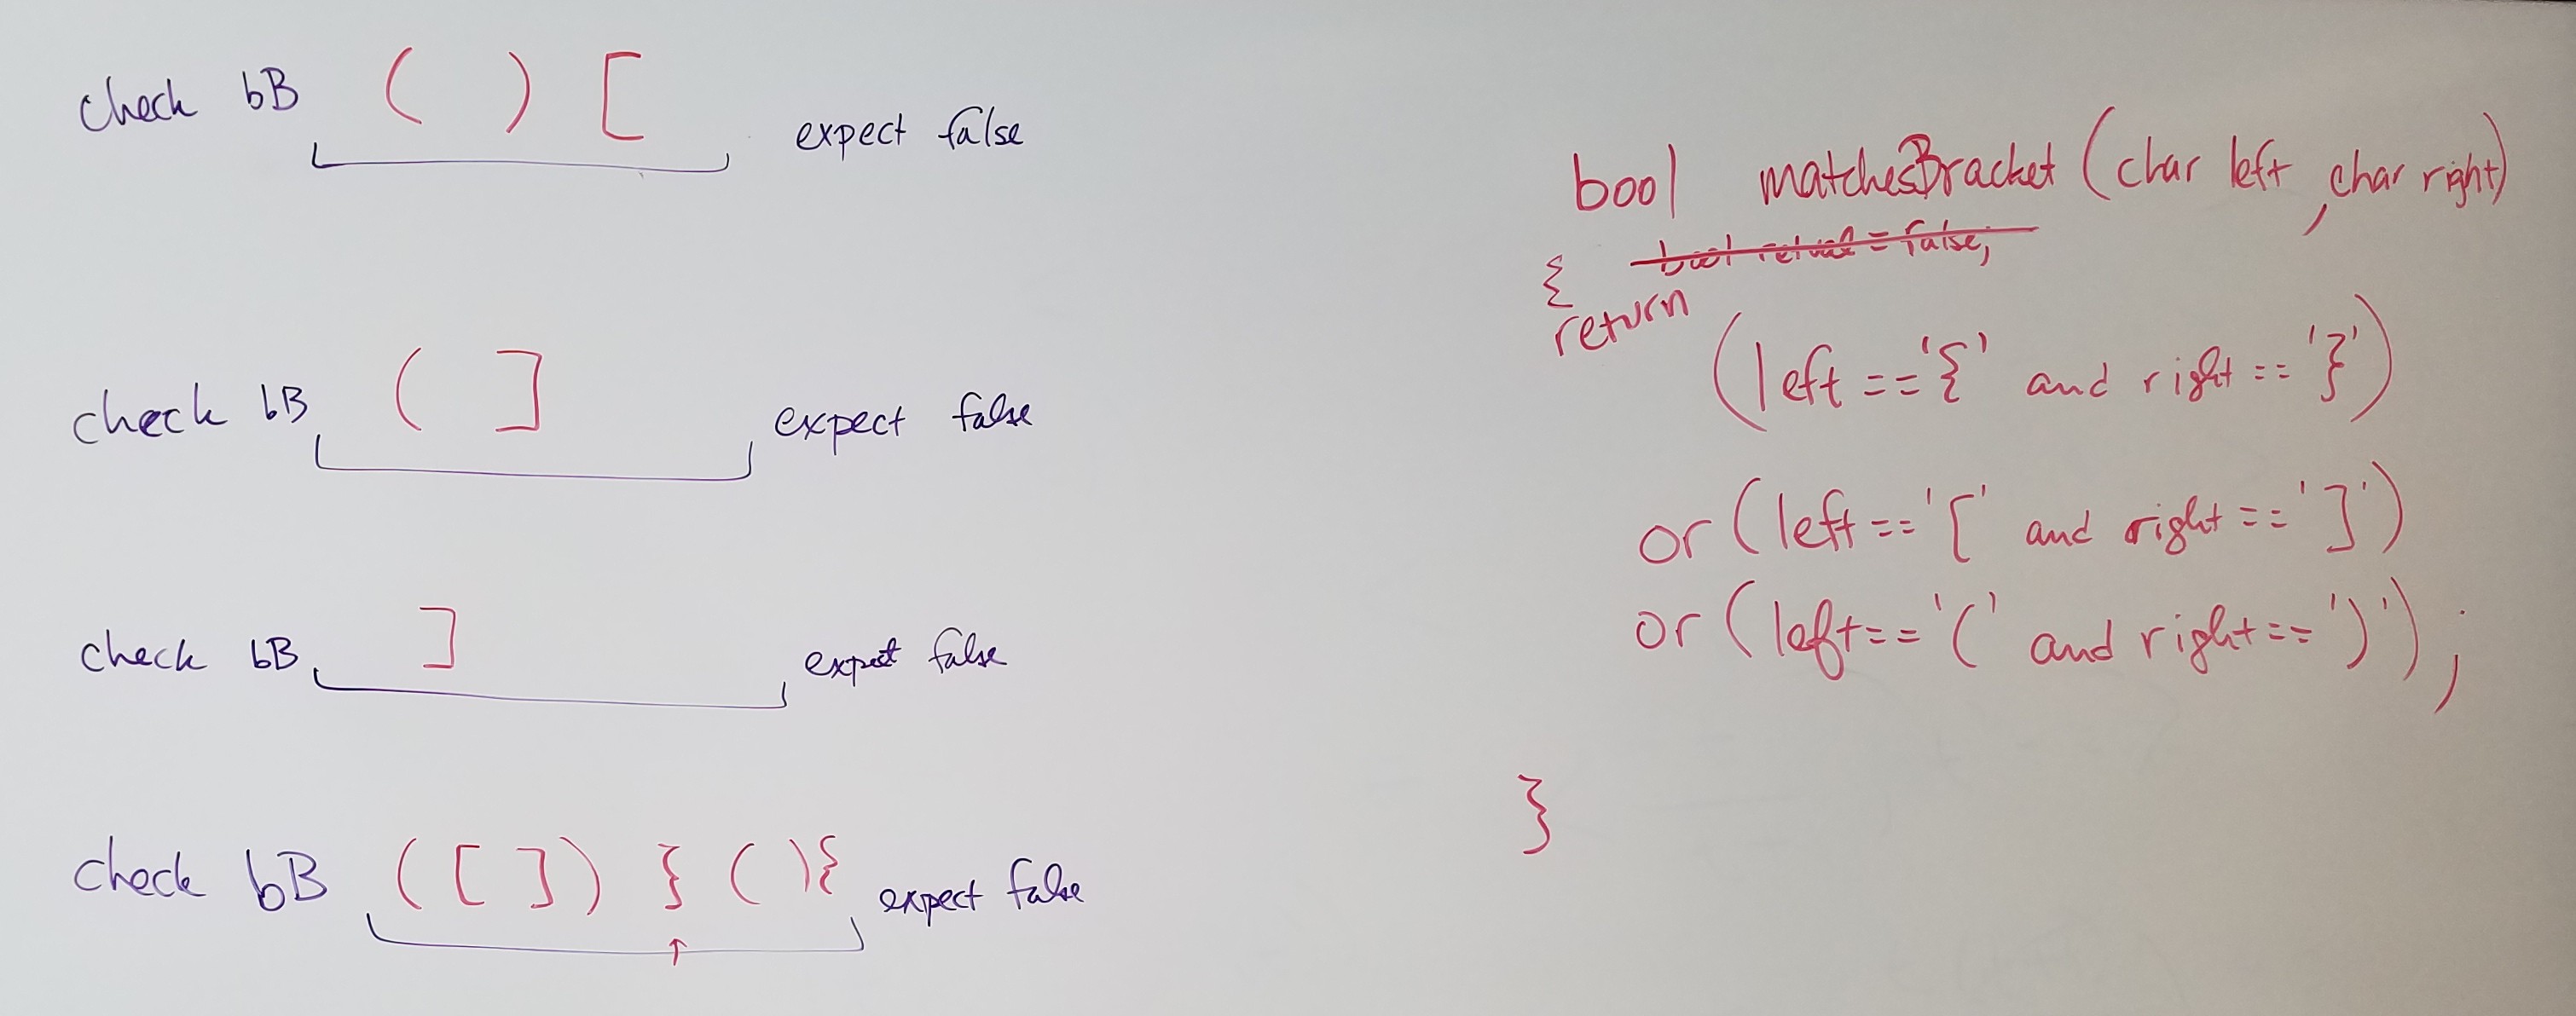 check bB ( ) [ expect false
check bB ( ] expect false
check bB ] expect false
check bB ( [ ] ) } ( ) { expect false
↑
bool matchesBracket (char left, char right)
{ bool retval = false;
return
(left == '{' and right == '}')
or (left == '[' and right == ']')
or (left == '(' and right == ')');
}